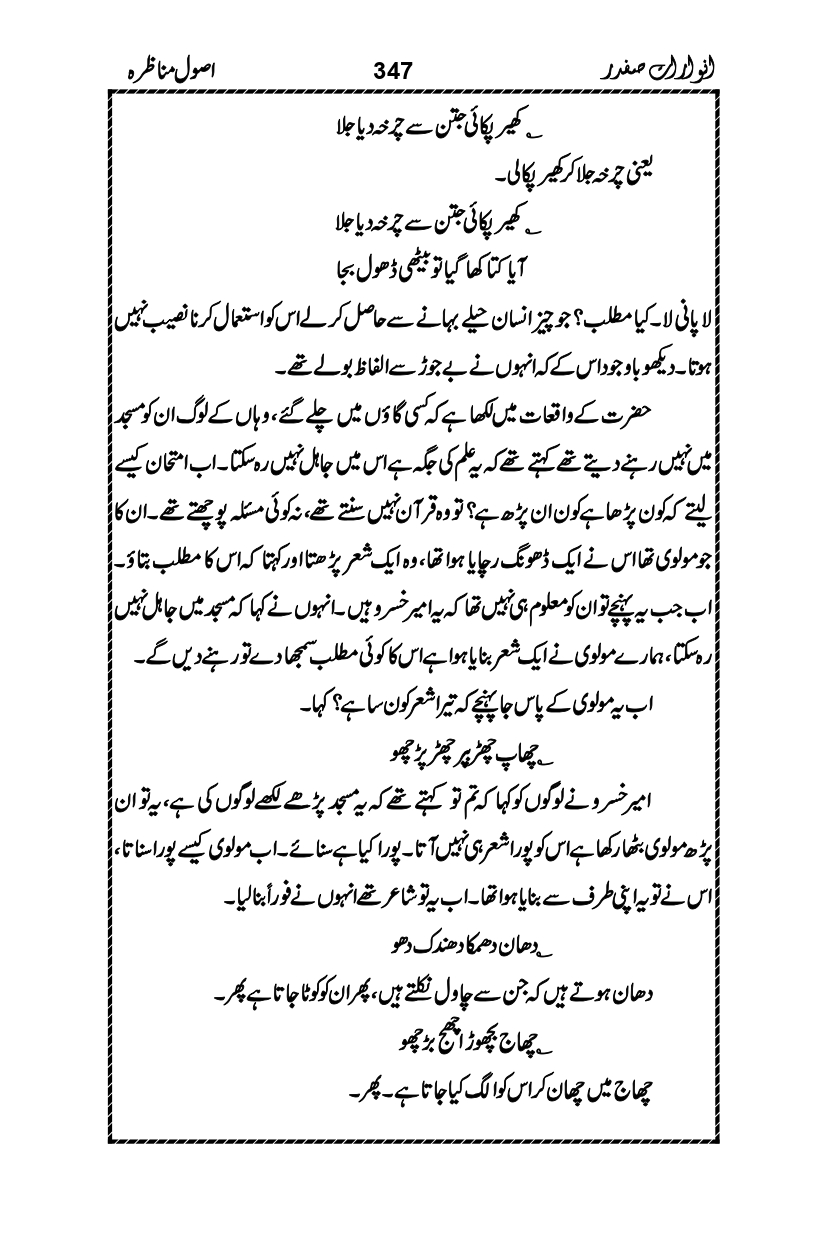 انوارات صفدر 347 اصول مناظرہ
؎ کھیر پکائی جتن سے چرخہ دیا جلا
یعنی چرخہ جلا کر کھیر پکالی۔
؎ کھیر پکائی جتن سے چرخہ دیا جلا
آیا کتا کھا گیا تو بیٹھی ڈھول بجا
لا پانی لا۔ کیا مطلب؟ جو چیز انسان حیلے بہانے سے حاصل کر لے اس کو استعمال کرنا نصیب نہیں
ہوتا۔ دیکھو باوجود اس کے کہ انہوں نے بے جوڑ سے الفاظ بولے تھے۔
حضرت کے واقعات میں لکھا ہے کہ کسی گاؤں میں چلے گئے، وہاں کے لوگ ان کو مسجد
میں نہیں رہنے دیتے تھے کہتے تھے کہ یہ علم کی جگہ ہے اس میں جاہل نہیں رہ سکتا۔ اب امتحان کیسے
لیتے کہ کون پڑھا ہے کون ان پڑھ ہے؟ تو وہ قرآن نہیں سنتے تھے، نہ کوئی مسئلہ پوچھتے تھے۔ ان کا
جو مولوی تھا اس نے ایک ڈھونگ رچایا ہوا تھا، وہ ایک شعر پڑھتا اور کہتا کہ اس کا مطلب بتاؤ۔
اب جب یہ پہنچے تو ان کو معلوم ہی نہیں تھا کہ یہ امیر خسرو ہیں۔ انہوں نے کہا کہ مسجد میں جاہل نہیں
رہ سکتا، ہمارے مولوی نے ایک شعر بنایا ہوا ہے اس کا کوئی مطلب سمجھا دے تو رہنے دیں گے۔
اب یہ مولوی کے پاس جا پہنچے کہ تیرا شعر کون سا ہے؟ کہا۔
؎ چھاپ چھڑ پر چھڑ پڑ چھو
امیر خسرو نے لوگوں کو کہا کہ تم تو کہتے تھے کہ یہ مسجد پڑھے لکھے لوگوں کی ہے، یہ تو ان
پڑھ مولوی بٹھا رکھا ہے اس کو پورا شعر ہی نہیں آتا۔ پورا کیا ہے سنائے۔ اب مولوی کیسے پورا سناتا،
اس نے تو یہ اپنی طرف سے بنایا ہوا تھا۔ اب یہ تو شاعر تھے انہوں نے فوراً بنا لیا۔
؎ دھان دھمکا دھندک دھو
دھان ہوتے ہیں کہ جن سے چاول نکلتے ہیں، پھر ان کو کوٹا جاتا ہے پھر۔
؎ چھاج بچھوڑ اچھج بڑ چھو
چھاج میں چھان کر اس کو الگ کیا جاتا ہے۔ پھر۔